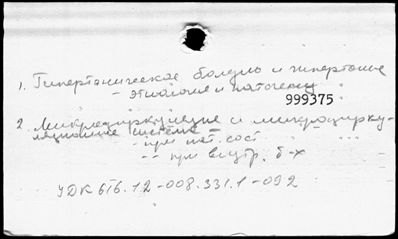 1. Гипертоническая болезнь и гипертония
- этиология и патогенез
999375
2. Микроциркуляция и микроцирку-
ляционные системы -
- при пат. сост
-- при внутр. б-х
УДК 616.12-008.331.1-092